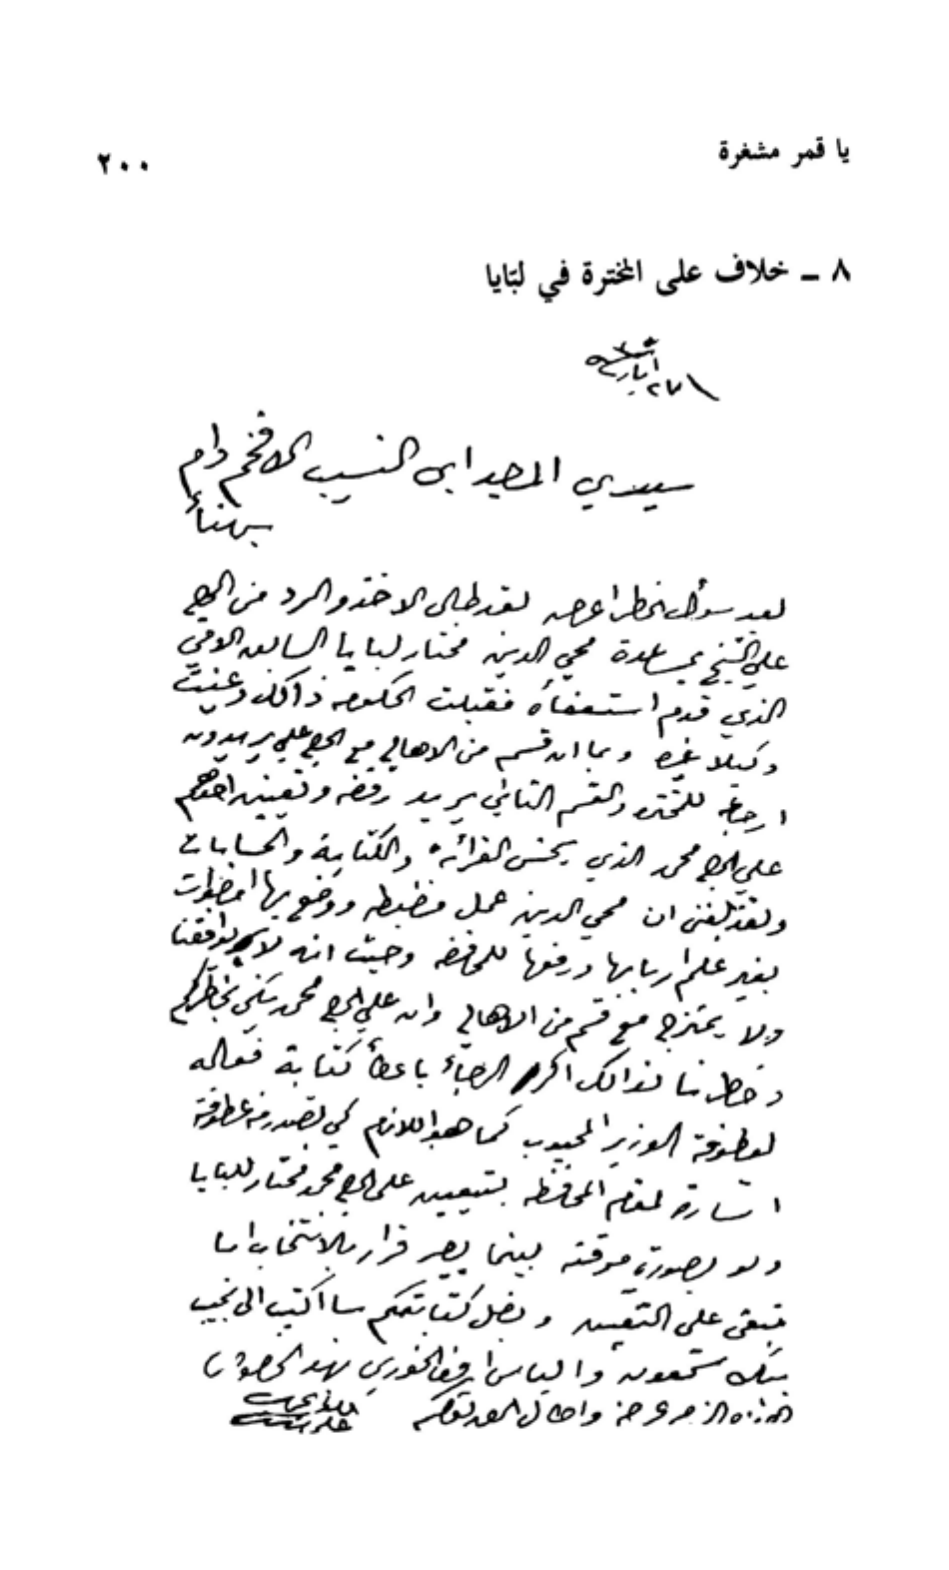 يا قمر مشغرة
٢٠٠
٨ ـ خلاف على المخترة في لبّايا
٢٧ ايار
سيدي المجيد ابن النسيب الافخم دام
بهناء
بعد سوأل خاطر اعرض لقد طال الاخذ والرد من الحاج
علي الشيخ بمساعدة محي الدين مختار لبايا السابق
الذي قدم استعفاه فقبلت الحكومه ذالك وعينت
وكيلا غيره وبما ان قسم من الاهالي مع الحاج علي يريدون
ارجاعه للمختره والقسم الثاني يريد رفضه وتعيين
علي الحاج محمد الذي يحسن القرائه والكتابة والحسابات
ولقد بلغني ان محي الدين عمل مضبطه ووضع بها امضاوات
بغير علم اربابها ورفعها للمحافظه وحيث انه لا يوافقنا
ولا يمتزج مع قسم من الاهالي وان علي الحاج محمد بخاطركم
وخاطرنا لذالك اكرر الرجاء باعطاء كتابة فعاله
لعطوفة الوزير المحبوب كما هو اللازم كي تصدر من عطوفته
اشارة لمقام المحافظه بتعيين علي الحاج محمد مختار للبايا
ولو بصورة موقته بينما يصير قرار بالانتخاب اما
تبقى على التعيين وبضل كتابتكم سا اكتب الى نجيب
بيك شمعون والياس الخوري بهذا الخصوص
الزم عرضه واطال الله بقاكم